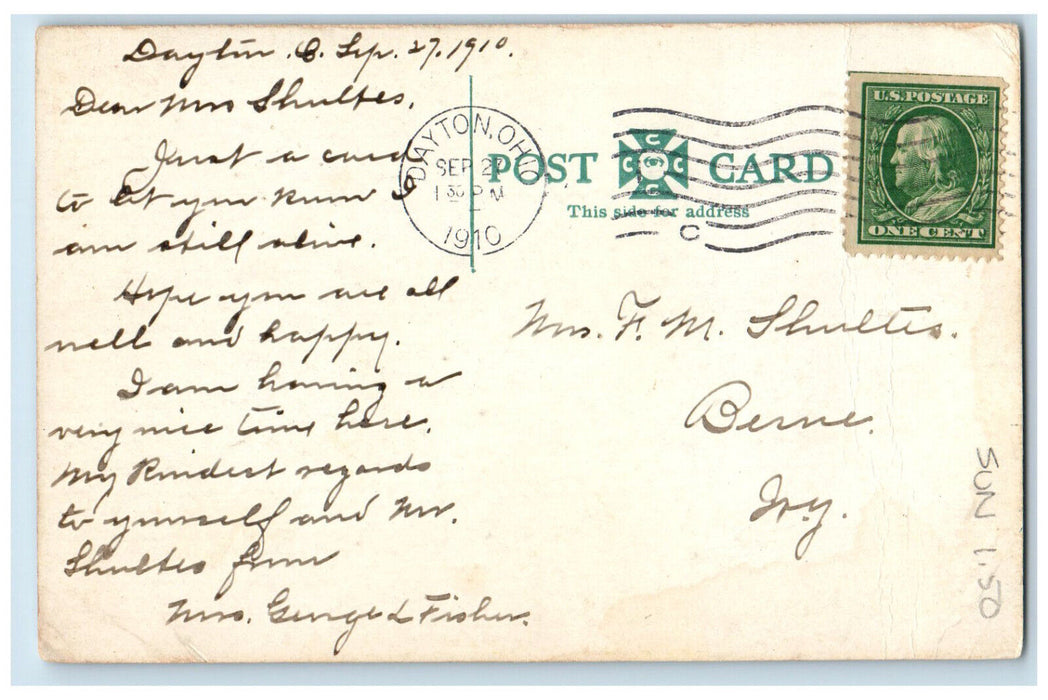 Dayton. O. Sep. 27. 1910.
Dear Mrs Shultes,
Just a card
to let you know I
am still alive.
Hope you are all
well and happy.
I am having a
very nice time here.
My kindest regards
to yourself and Mr.
Shultes from
Mrs. George L Fisher.
DAYTON, OHIO
SEP 27
1 30 P M
1910
POST CARD
This side for address
C
U.S. POSTAGE
ONE CENT
Mrs. F. M. Shultes.
Berne.
N.Y.
SUN 1.50